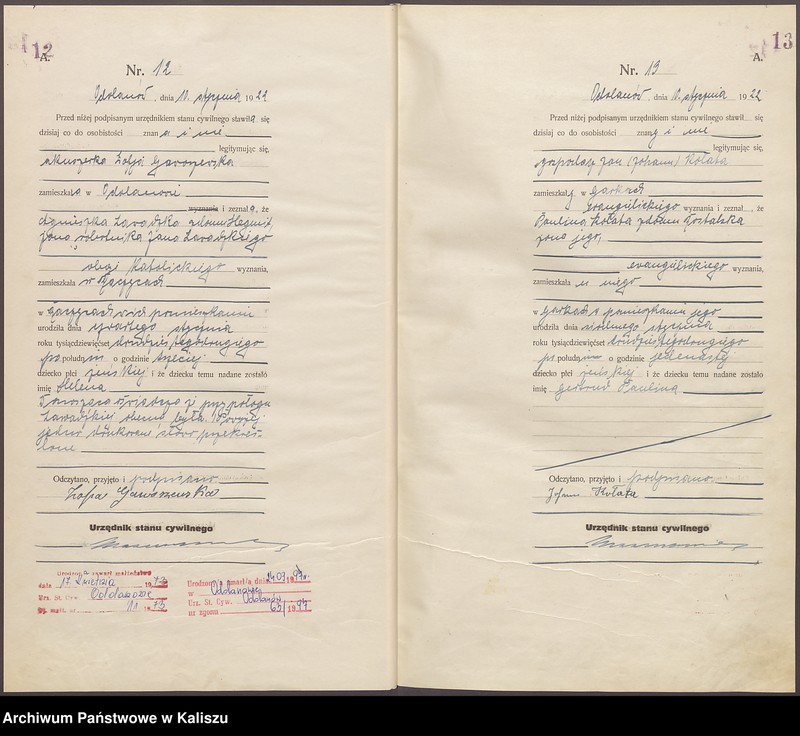 12
A.
Nr. 12
Odolanów, dnia 11. stycznia 1922
Przed niżej podpisanym urzędnikiem stanu cywilnego stawiła się
dzisiaj co do osobistości znana i mi
legitymując się,
akuszerka Zofja
zamieszkała w Odolanowie
wyznania i zeznała, że
Agnieszka Zawadzka z domu
żona robotnika Jana Zawadzkiego
obojga katolickiego wyznania,
zamieszkała w
w pomieszkaniu
urodziła dnia czwartego stycznia
roku tysiącdziewięćset dwudziestegodrugiego
po południu o godzinie trzeciej
dziecko płci żeńskiej i że dziecku temu nadane zostało
imię Helena
przy połogu
Zawadzkiej obecną była. Powyżej
jedno drukowane słowo przekreś-
lono
Odczytano, przyjęto i podpisano
Zofia
Urzędnik stanu cywilnego
dnia 17. kwietnia 1973
Urz. St. Cyw. Odolanowie
11 1973
dnia 24.09.1997r.
w Odolanowie
Urz. St. Cyw. Odolanów
nr zgonu 63/1997
13
A.
Nr. 13
Odolanów, dnia 11. stycznia 1922
Przed niżej podpisanym urzędnikiem stanu cywilnego stawił się
dzisiaj co do osobistości znany i mi
legitymując się,
gospodarz Jan (Johann) Kołata
zamieszkały w Garkach
ewangelickiego wyznania i zeznał, że
Paulina Kołata z domu
żona jego,
ewangelickiego wyznania,
zamieszkała u niego
w Garkach w pomieszkaniu jego
urodziła dnia siódmego stycznia
roku tysiącdziewięćset dwudziestegodrugiego
po południu o godzinie jedenastej
dziecko płci żeńskiej i że dziecku temu nadane zostało
imię Gertrud Paulina
Odczytano, przyjęto i podpisano
Johann Kołata
Urzędnik stanu cywilnego
Archiwum Państwowe w Kaliszu